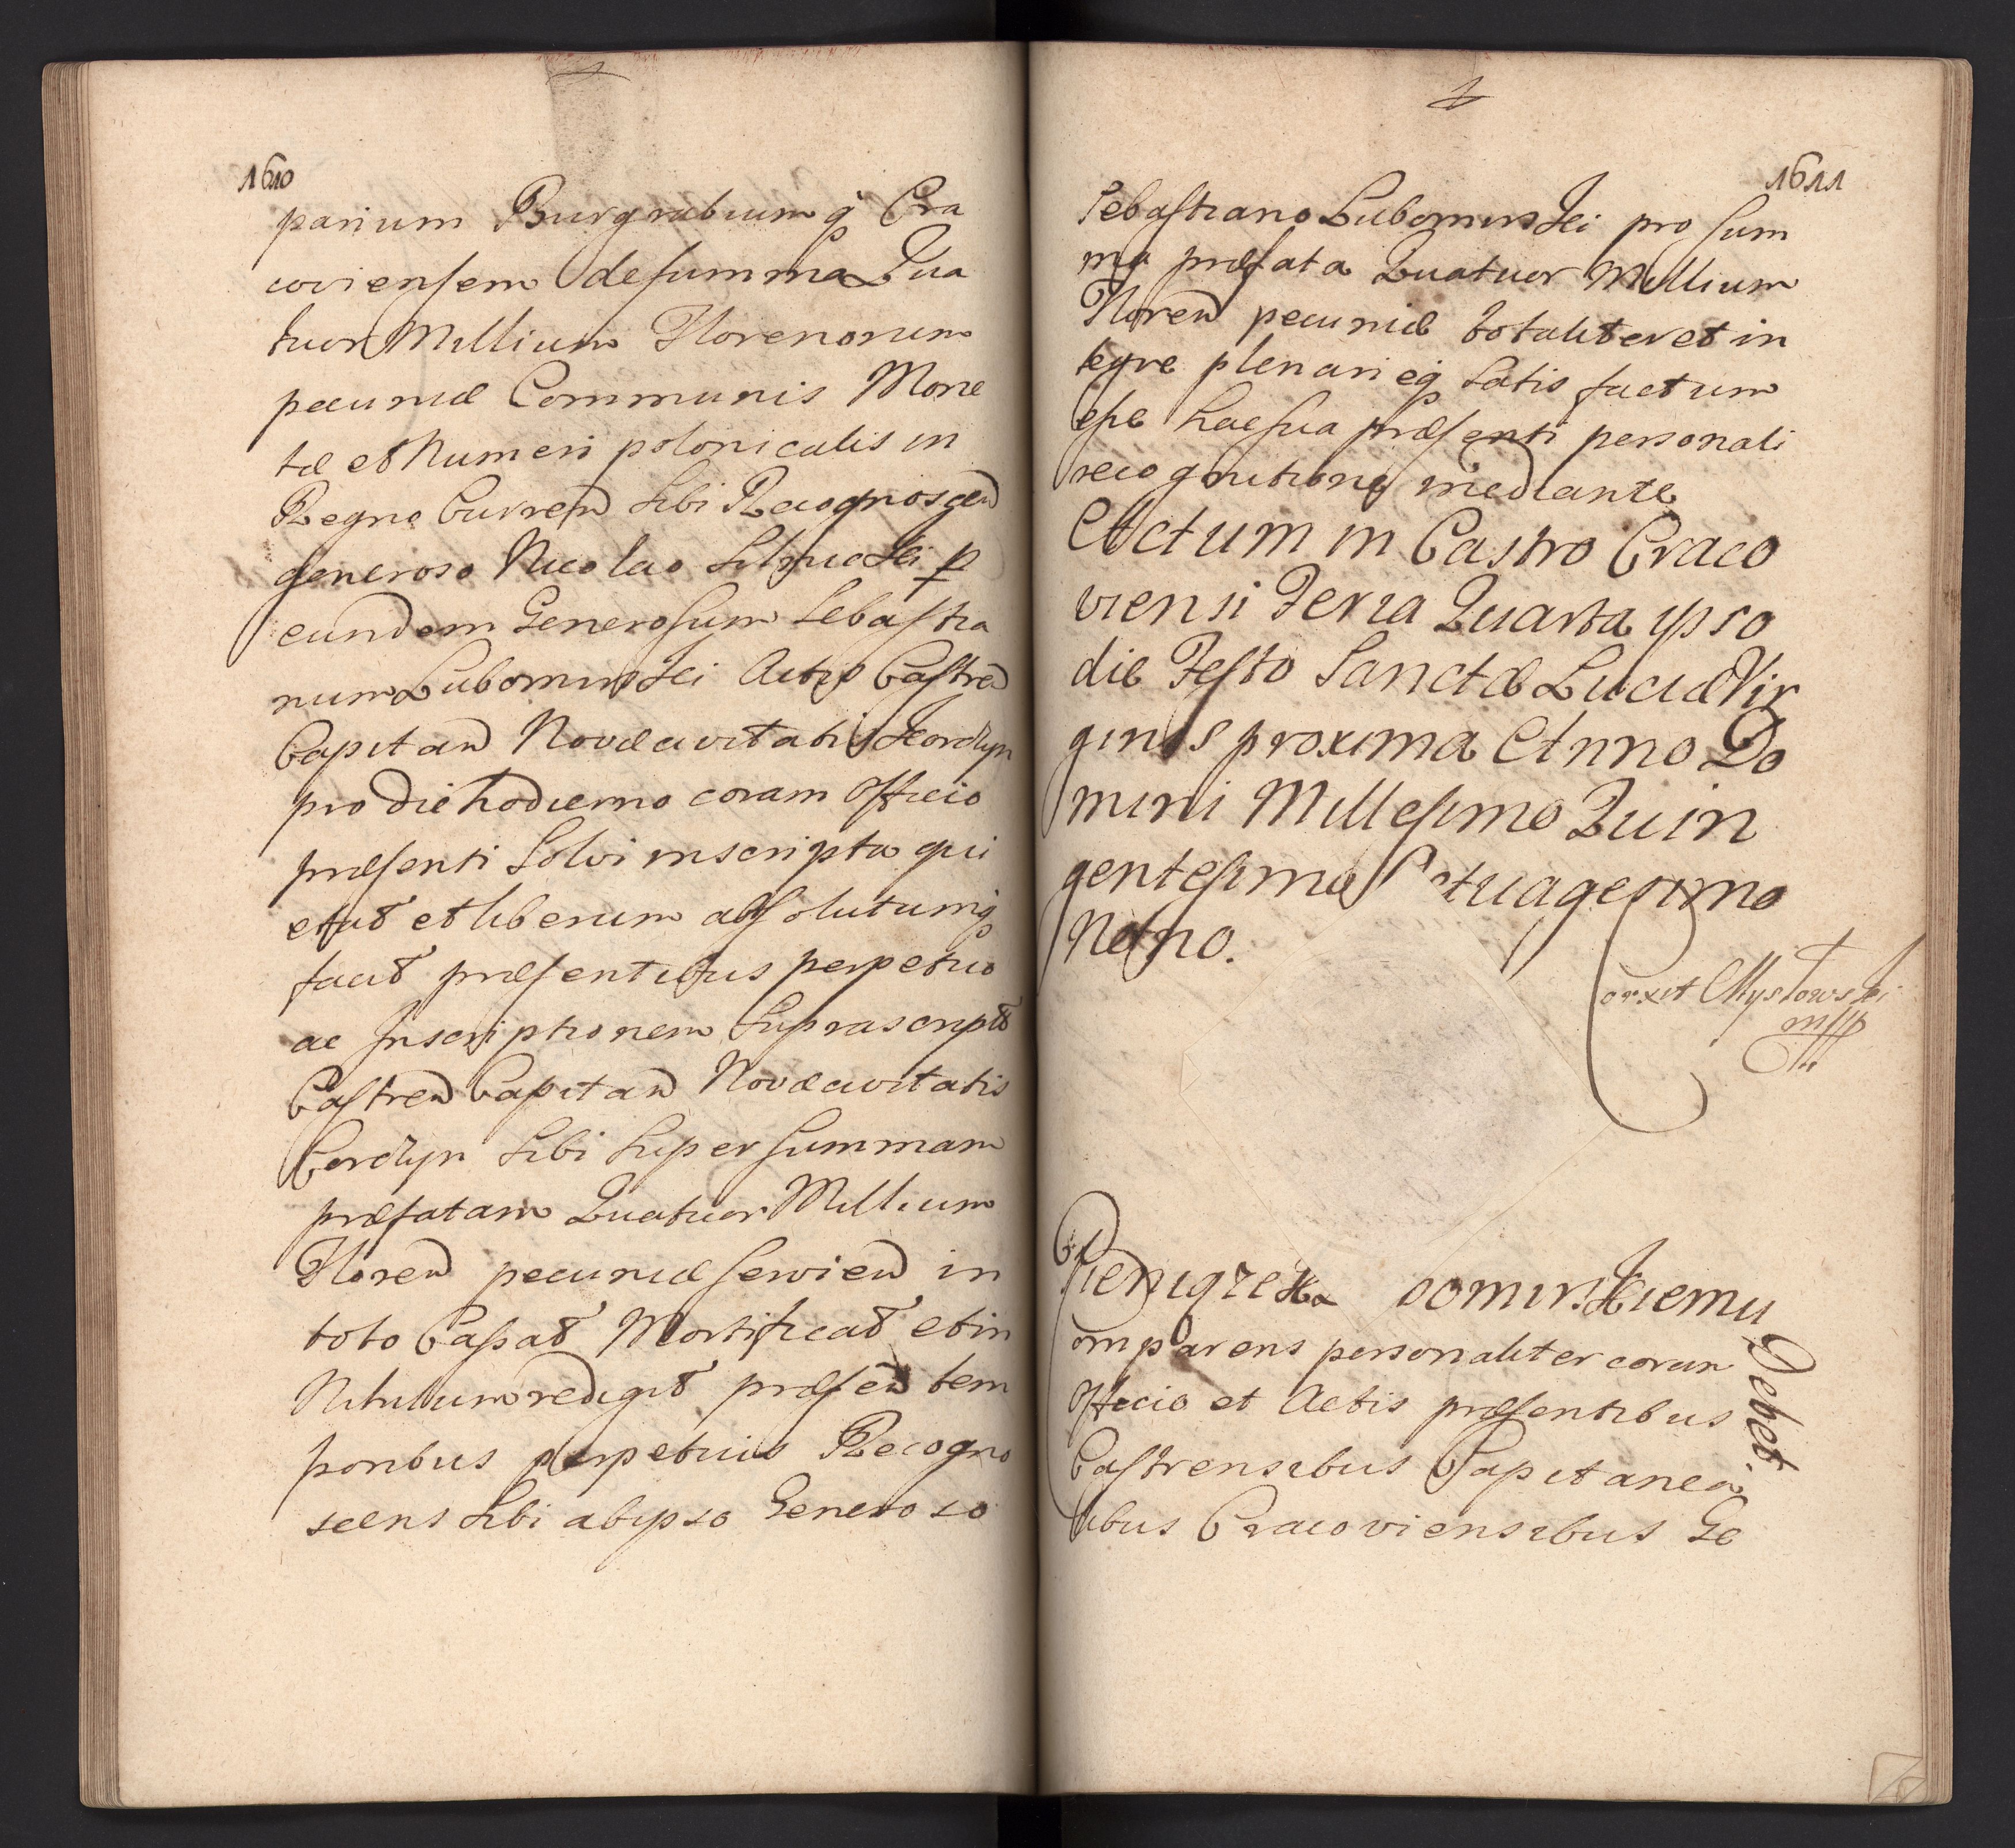 1610
parium Burgrabiumq Cra
coviensem de summa Qua
tuor Millium Florenorum
pecuniæ Communis Mone
tæ et Numeri polonicalis in
Regno Curren sibi Recognoscen
generoso Nicolao p
eundem Generosum Sebastia
num Lubomirski Actis Castren
Capitan Novæ civitatis Kordzyn
pro die hodierno coram Officio
præsenti Solvi inscripta qui
etat et liberum absolutumq
facit præsentibus perpetuo
ac Inscriptionem Suprascript
Castren Capitan Novæ civitatis
Cordzyn Sibi Super Summam
præfatam Quatuor Millium
Floren pecuniæ servien in
toto Cassat Mortificat et in
Nihilum redigit præsen tem
poribus perpetuis Recogno
scens Sibi ab ipso Generoso
1611
Sebastiano Lubomirski pro Sum
ma præfata Quatuor Millium
Floren pecuniæ totaliter et in
tegre plenarieq Satisfactum
esse hac sua præsenti personali
recognitione mediante
Actum in Castro Craco
viensi Feria Quarta ipso
die Festo Sanctæ Luciæ Vir
ginis proxima Anno Do
mini Millesimo Quin
gentesimo Octuagesimo
Nono.
Corxit Mysłowski
mpp
Pieniązek Lomirskiemu
Debet
Comparens personaliter coram
Officio et Actis præsentibus
Castrensibus Capitanea
libus Cracoviensibus Ge